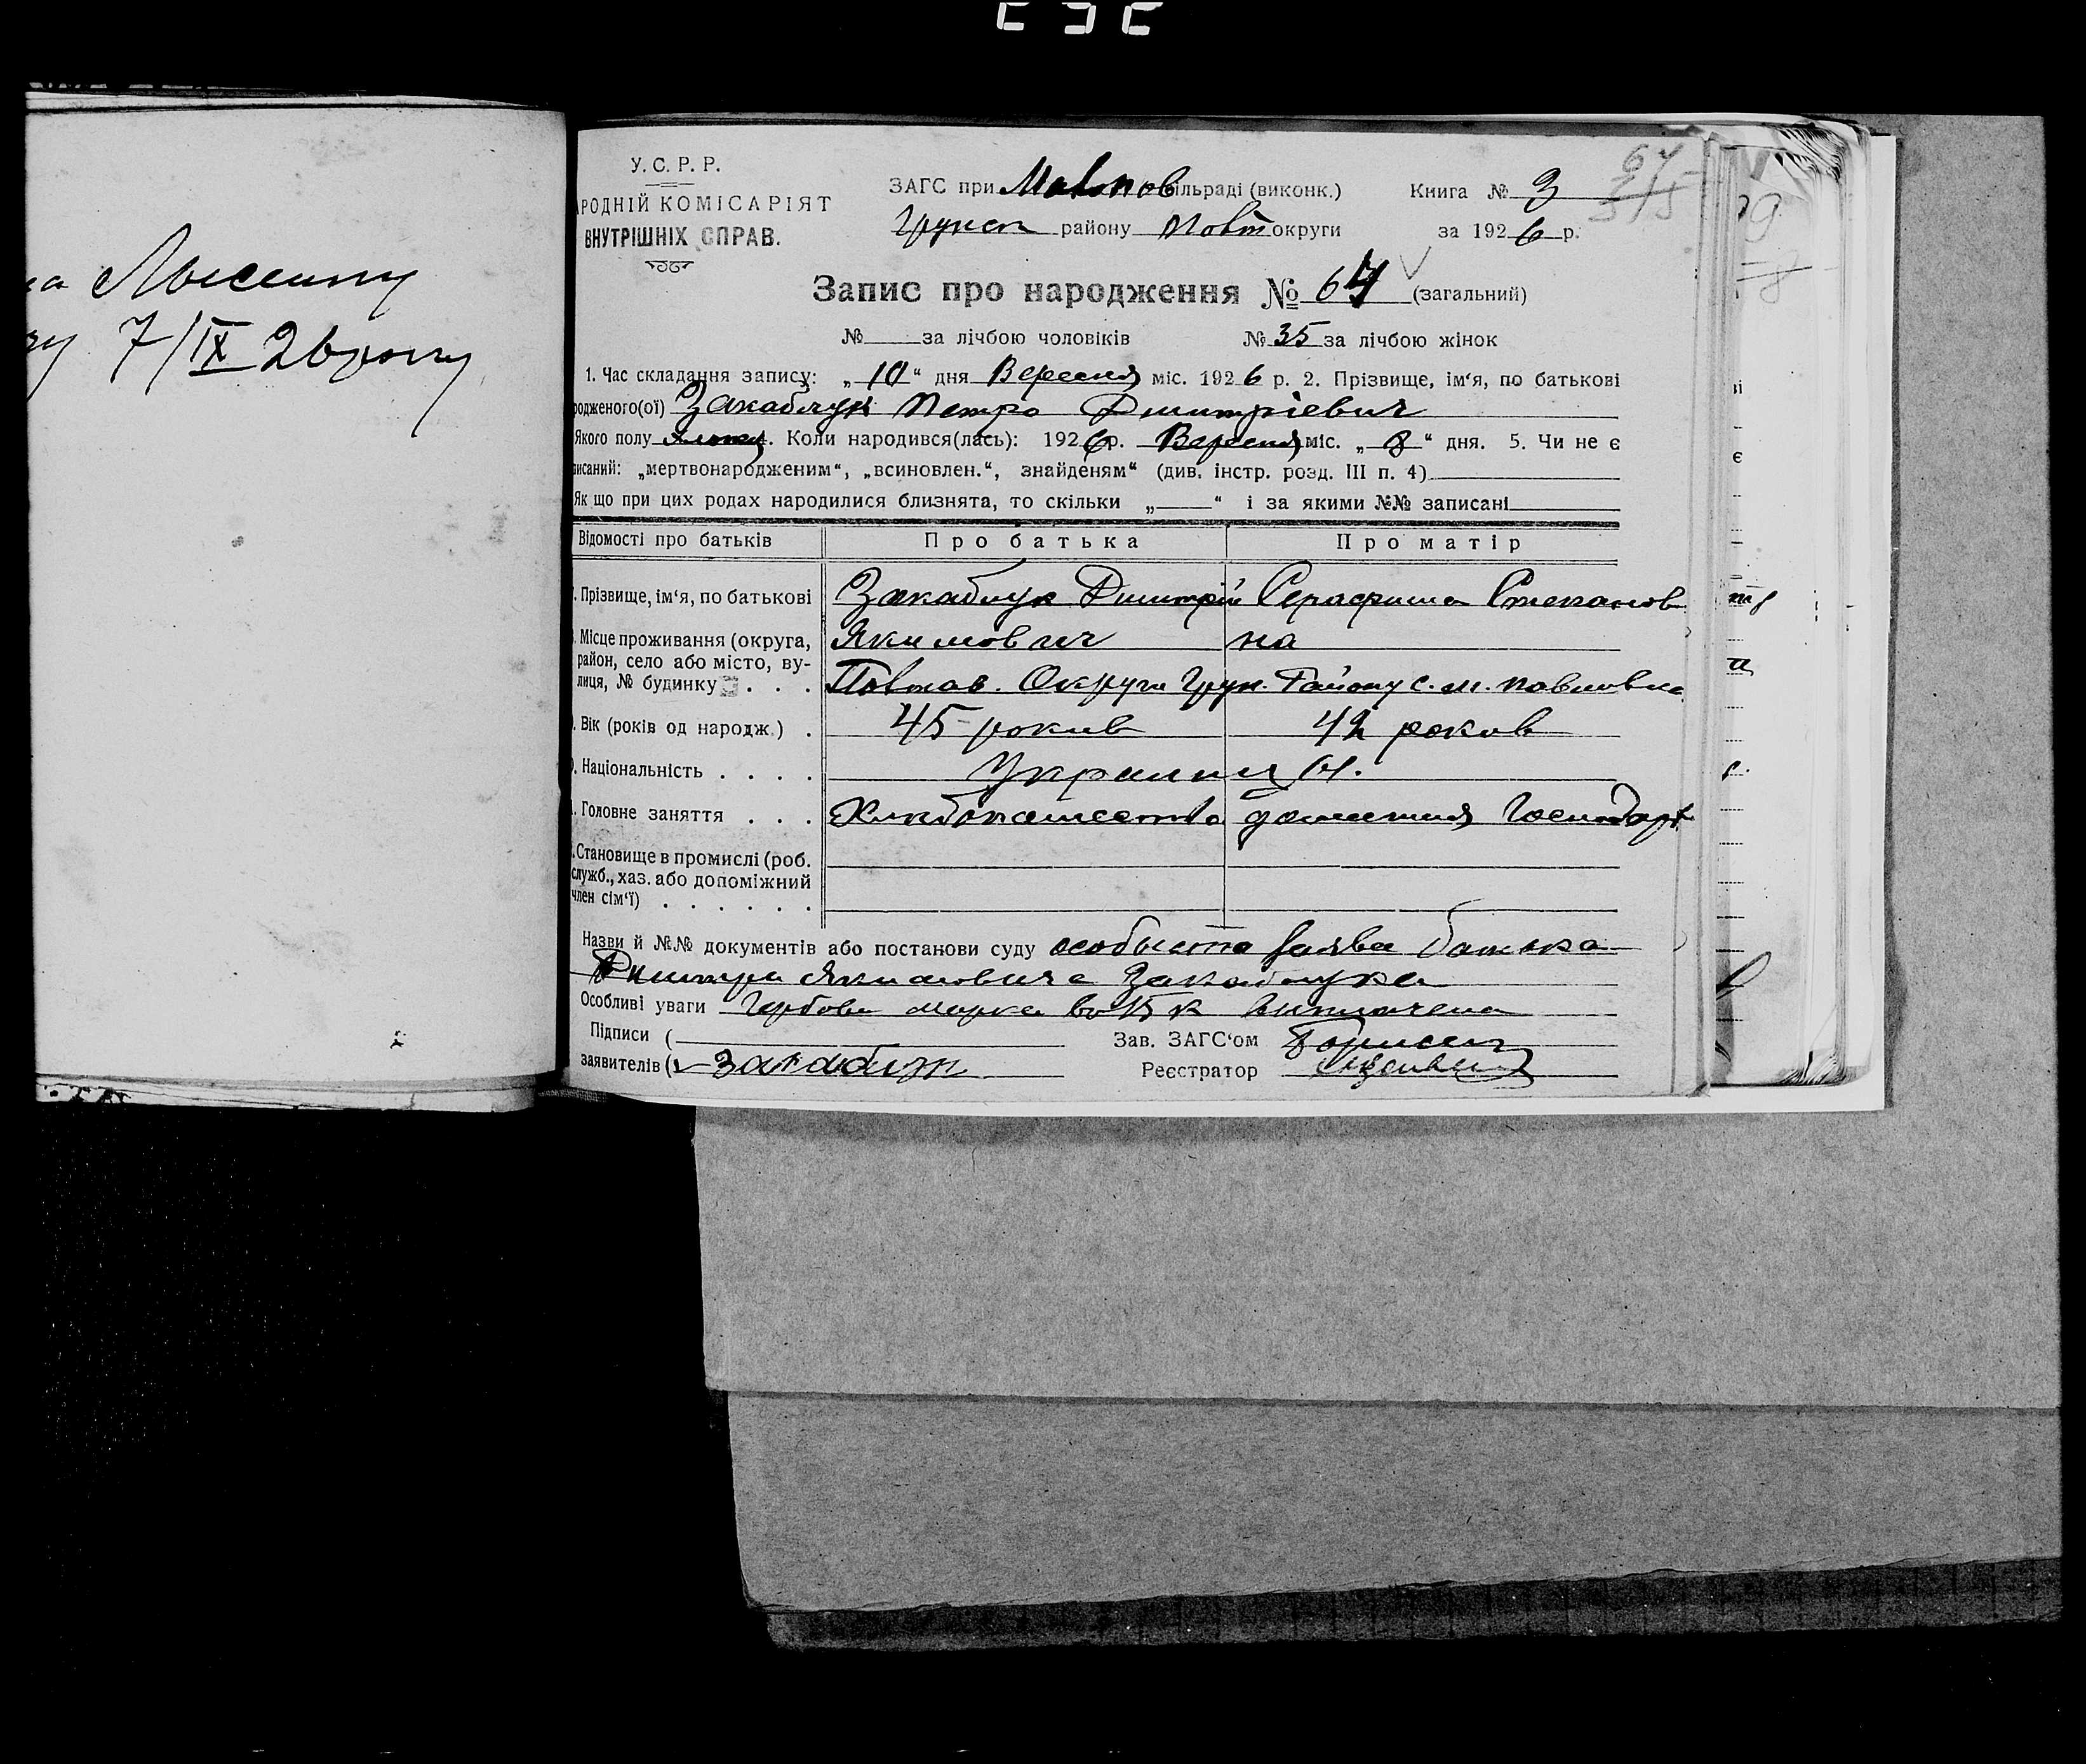 Лыссину
7/IX 26 року
У.С.Р.Р.
РОДНІЙ КОМІСАРІЯТ
ВНУТРІШНІХ СПРАВ.
ЗАГС при Мавпов ільраді (виконк.)
Грунск району Полт округи
Книга № 3
за 1926 р.
Запис про народження № 64 (загальний)
№ за лічбою чоловіків № 35 за лічбою жінок
1. Час складання запису: „10“ дня Вересня міс. 1926 р. 2. Прізвище, ім‘я, по батькові
родженого(ої) Закаблук Петро Дмитріевич
Якого полу Коли народився(лась): 1926 р. Вересня міс. „8“ дня. 5. Чи не є
писаний: „мертвонародженим“, „всиновлен.“, знайденям“ (див. інстр. розд. III п. 4)
Як що при цих родах народилися близнята, то скільки „ “ і за якими №№ записані
Відомості про батьків Про батька Про матір
Прізвище, ім‘я, по батькові Закаблук Дмитрій Серафима Степанов
Місце проживання (округа, Якимович на
район, село або місто, ву-
лиця, № будинку . . . Полтав. Округи Грун. Району с. М. Павловка
Вік (років од народж.) . 45 рокив 42 рокив
Національність . . . . Украинци
Головне заняття . . . Хлибопашество домашня Господар
Становище в промислі (роб.
служб., хаз. або допоміжний
член сім‘ї) . . . . . .
Назви й №№ документів або постанови суду особыста заява батька
Дмитри Якимовича Закаблука
Особливі уваги Гербова марка в 15 к виплачена
Підписи (
заявителів ( Закаблук
Зав. ЗАГС‘ом
Реєстратор